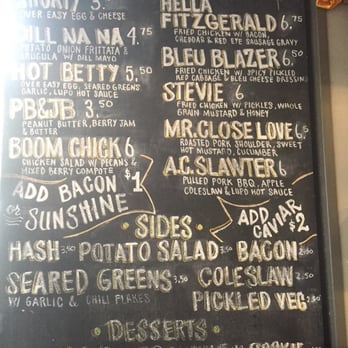 3.
OVER EASY EGG & CHEESE
DILL NA NA 4.75
POTATO ONION FRITTATA &
ARUGULA W/ DILL MAYO
HOT BETTY 5.50
OVER EASY EGG, SEARED GREENS
GARLIC, LUPO HOT SAUCE
PB&JB 3.50
PEANUT BUTTER, BERRY JAM
& BUTTER
BOOM CHICK 6
CHICKEN SALAD W/ PECANS &
MIXED BERRY COMPOTE
ADD BACON $1
OR SUNSHINE
HELLA
FITZGERALD 6.75
FRIED CHICKEN W/ BACON,
CHEDDAR & RED EYE SAUSAGE GRAVY
BLEU BLAZER 6.50
FRIED CHICKEN W/ SPICY PICKLED
RED CABBAGE & BLEU CHEESE DRESSING
STEVIE 6
FRIED CHICKEN W/ PICKLES, WHOLE
GRAIN MUSTARD & HONEY
MR. CLOSE LOVE 6.5
ROASTED PORK SHOULDER, SWEET
HOT MUSTARD, CUCUMBER
A.C. SLAWTER 6
PULLED PORK BBQ, APPLE
COLESLAW & LUPO HOT SAUCE
ADD CAVIAR $2
SIDES
HASH 3.50 POTATO SALAD 3.50 BACON 2.50
SEARED GREENS 3.50 COLESLAW 2.50
W/ GARLIC & CHILI FLAKES
PICKLED VEG 2.50
DESSERTS